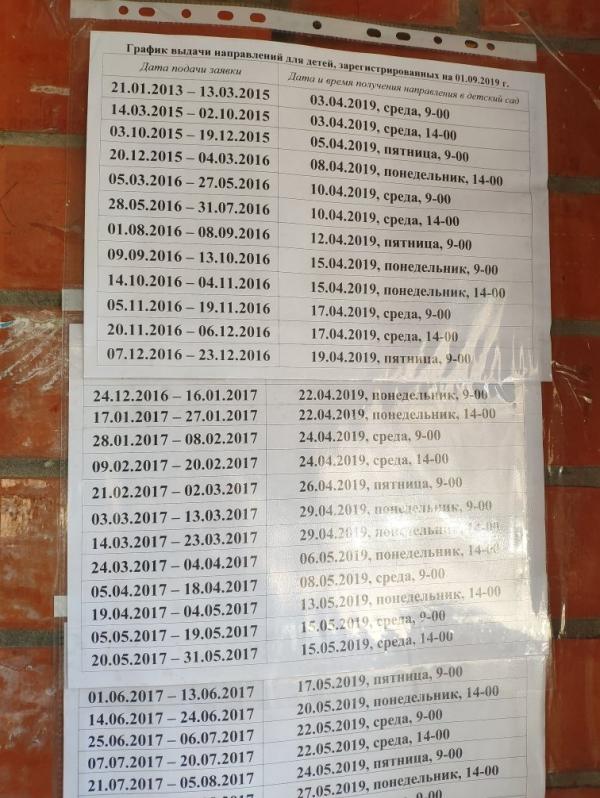 График выдачи направлений для детей, зарегистрированных на 01.09.2019 г.
Дата подачи заявки Дата и время получения направления в детский сад
21.01.2013 – 13.03.2015 03.04.2019, среда, 9-00
14.03.2015 – 02.10.2015 03.04.2019, среда, 14-00
03.10.2015 – 19.12.2015 05.04.2019, пятница, 9-00
20.12.2015 – 04.03.2016 08.04.2019, понедельник, 14-00
05.03.2016 – 27.05.2016 10.04.2019, среда, 9-00
28.05.2016 – 31.07.2016 10.04.2019, среда, 14-00
01.08.2016 – 08.09.2016 12.04.2019, пятница, 9-00
09.09.2016 – 13.10.2016 15.04.2019, понедельник, 9-00
14.10.2016 – 04.11.2016 15.04.2019, понедельник, 14-00
05.11.2016 – 19.11.2016 17.04.2019, среда, 9-00
20.11.2016 – 06.12.2016 17.04.2019, среда, 14-00
07.12.2016 – 23.12.2016 19.04.2019, пятница, 9-00
24.12.2016 – 16.01.2017 22.04.2019, понедельник, 9-00
17.01.2017 – 27.01.2017 22.04.2019, понедельник, 14-00
28.01.2017 – 08.02.2017 24.04.2019, среда, 9-00
09.02.2017 – 20.02.2017 24.04.2019, среда, 14-00
21.02.2017 – 02.03.2017 26.04.2019, пятница, 9-00
03.03.2017 – 13.03.2017 29.04.2019, понедельник, 9-00
14.03.2017 – 23.03.2017 29.04.2019, понедельник, 14-00
24.03.2017 – 04.04.2017 06.05.2019, понедельник, 14-00
05.04.2017 – 18.04.2017 08.05.2019, среда, 9-00
19.04.2017 – 04.05.2017 13.05.2019, понедельник, 14-00
05.05.2017 – 19.05.2017 15.05.2019, среда, 9-00
20.05.2017 – 31.05.2017 15.05.2019, среда, 14-00
01.06.2017 – 13.06.2017 17.05.2019, пятница, 9-00
14.06.2017 – 24.06.2017 20.05.2019, понедельник, 14-00
25.06.2017 – 06.07.2017 22.05.2019, среда, 9-00
07.07.2017 – 20.07.2017 22.05.2019, среда, 14-00
21.07.2017 – 05.08.2017 24.05.2019, пятница, 9-00
27.05.2019, понедельник, 14-00